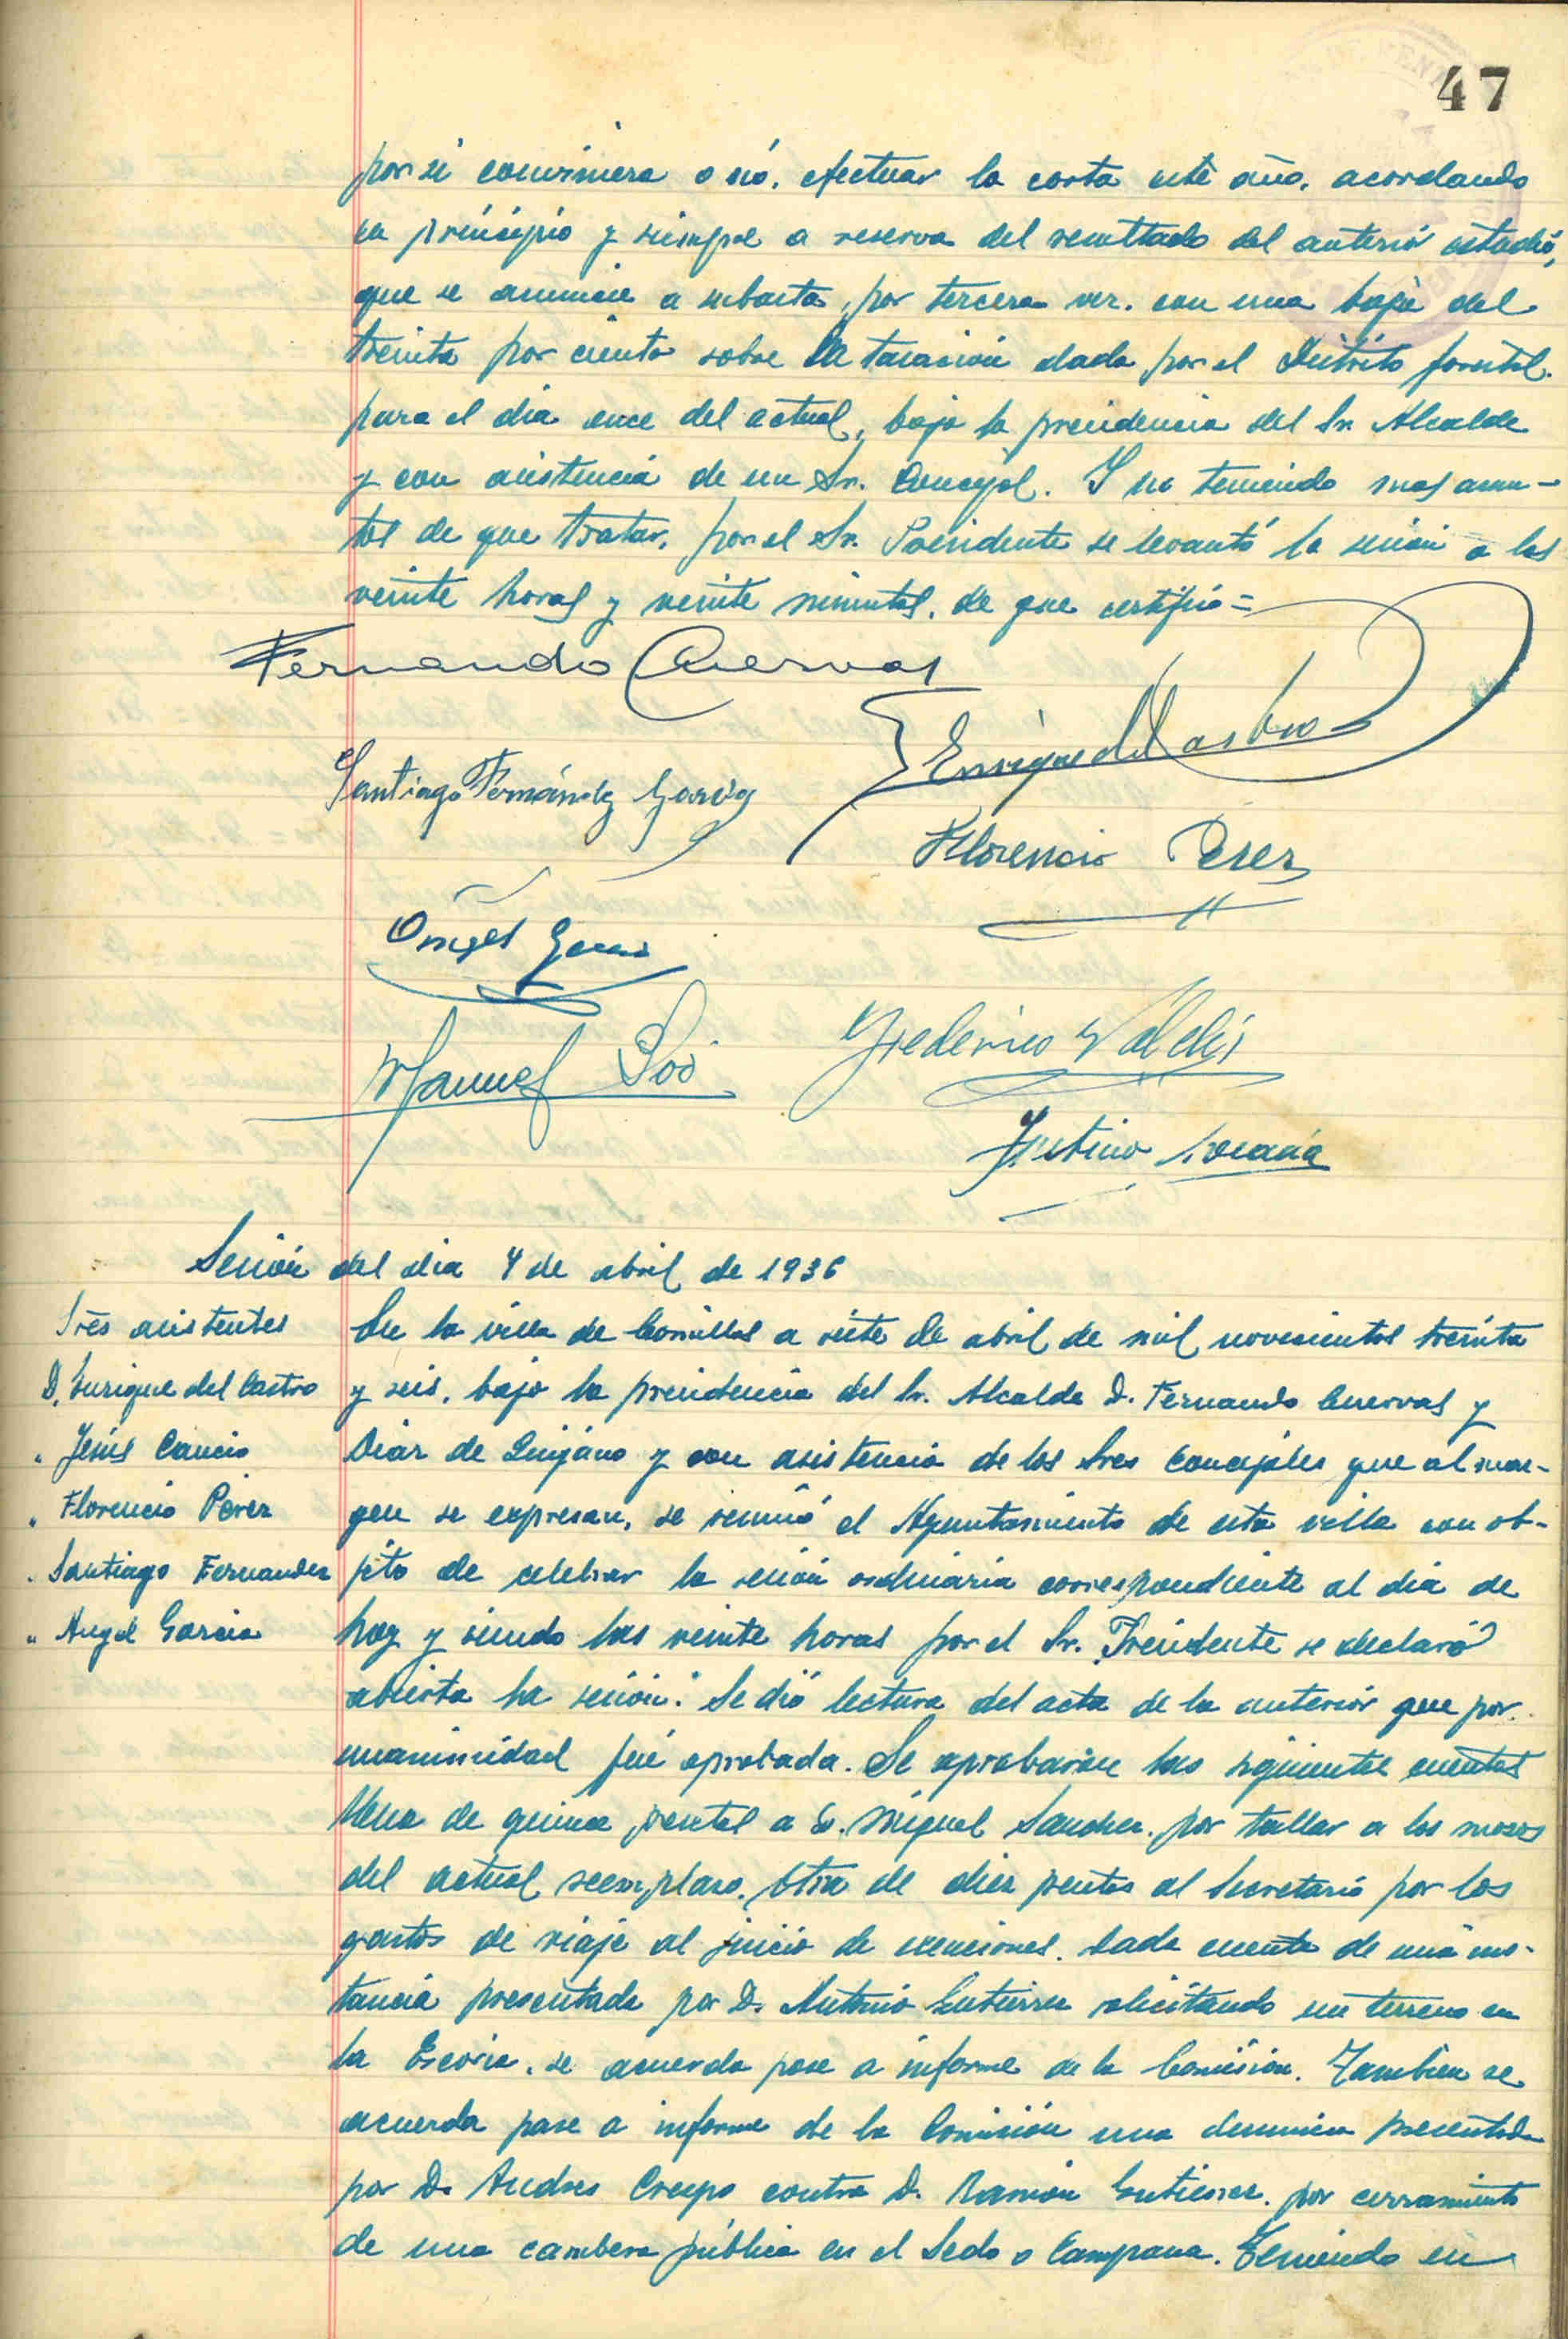 47
por si conviniera o nó, efectuar la corta este año, acordando
en principio y siempre a reserva del resultado del anterior estudio,
que se anuncie a subasta, por tercera vez, con una baja del
treinta por ciento sobre la tasación dada por el Distrito forestal,
para el dia once del actual, bajo la presidencia del Sr. Alcalde
y con asistencia de un Sr. Concejal. Y no teniendo mas asun-
tos de que tratar, por el Sr. Presidente se levantó la sesión a las
veinte horas y veinte minutos, de que certifico =
Fernando Cuervas
Enrique del Castro
Santiago Fernández García
Florencio Perez
Angel García
Manuel Poo
Frederico Valdés
Justino
Sesión del dia 7 de abril de 1936
Sres asistentes
D. Enrique del Castro
" Jesús Cancio
" Florencio Perez
" Santiago Fernandez
" Angel Garcia
En la villa de Comillas a siete de abril de mil novecientos treinta
y seis, bajo la presidencia del Sr. Alcalde D. Fernando Cuervas y
Diaz de Quijano y con asistencia de los Sres Concejales que al mar-
gen se expresan, se reunió el Ayuntamiento de esta villa con ob-
jeto de celebrar la sesión ordinaria correspondiente al dia de
hoy y siendo las veinte horas por el Sr. Presidente se declaró
abierta la sesión. Se dió lectura del acta de la anterior que por
unanimidad fué aprobada. Se aprobaron las siguientes cuentas
Una de quince pesetas a D. Miguel Sanchez, por tallar a los mozos
del actual reemplazo. Otra de diez pesetas al Secretario por los
gastos de viaje al juicio de exenciones. Dada cuenta de una ins-
tancia presentada por D. Antonio Gutierrez solicitando un terreno en
la Escoria, se acuerda pase a informe de la Comisión. Tambien se
acuerda pase a informe de la Comisión una denuncia presentada
por D. Andres Crespo contra D. Ramón Gutierrez, por cerramiento
de una cambera pública en el Sedo o Campana. Teniendo en